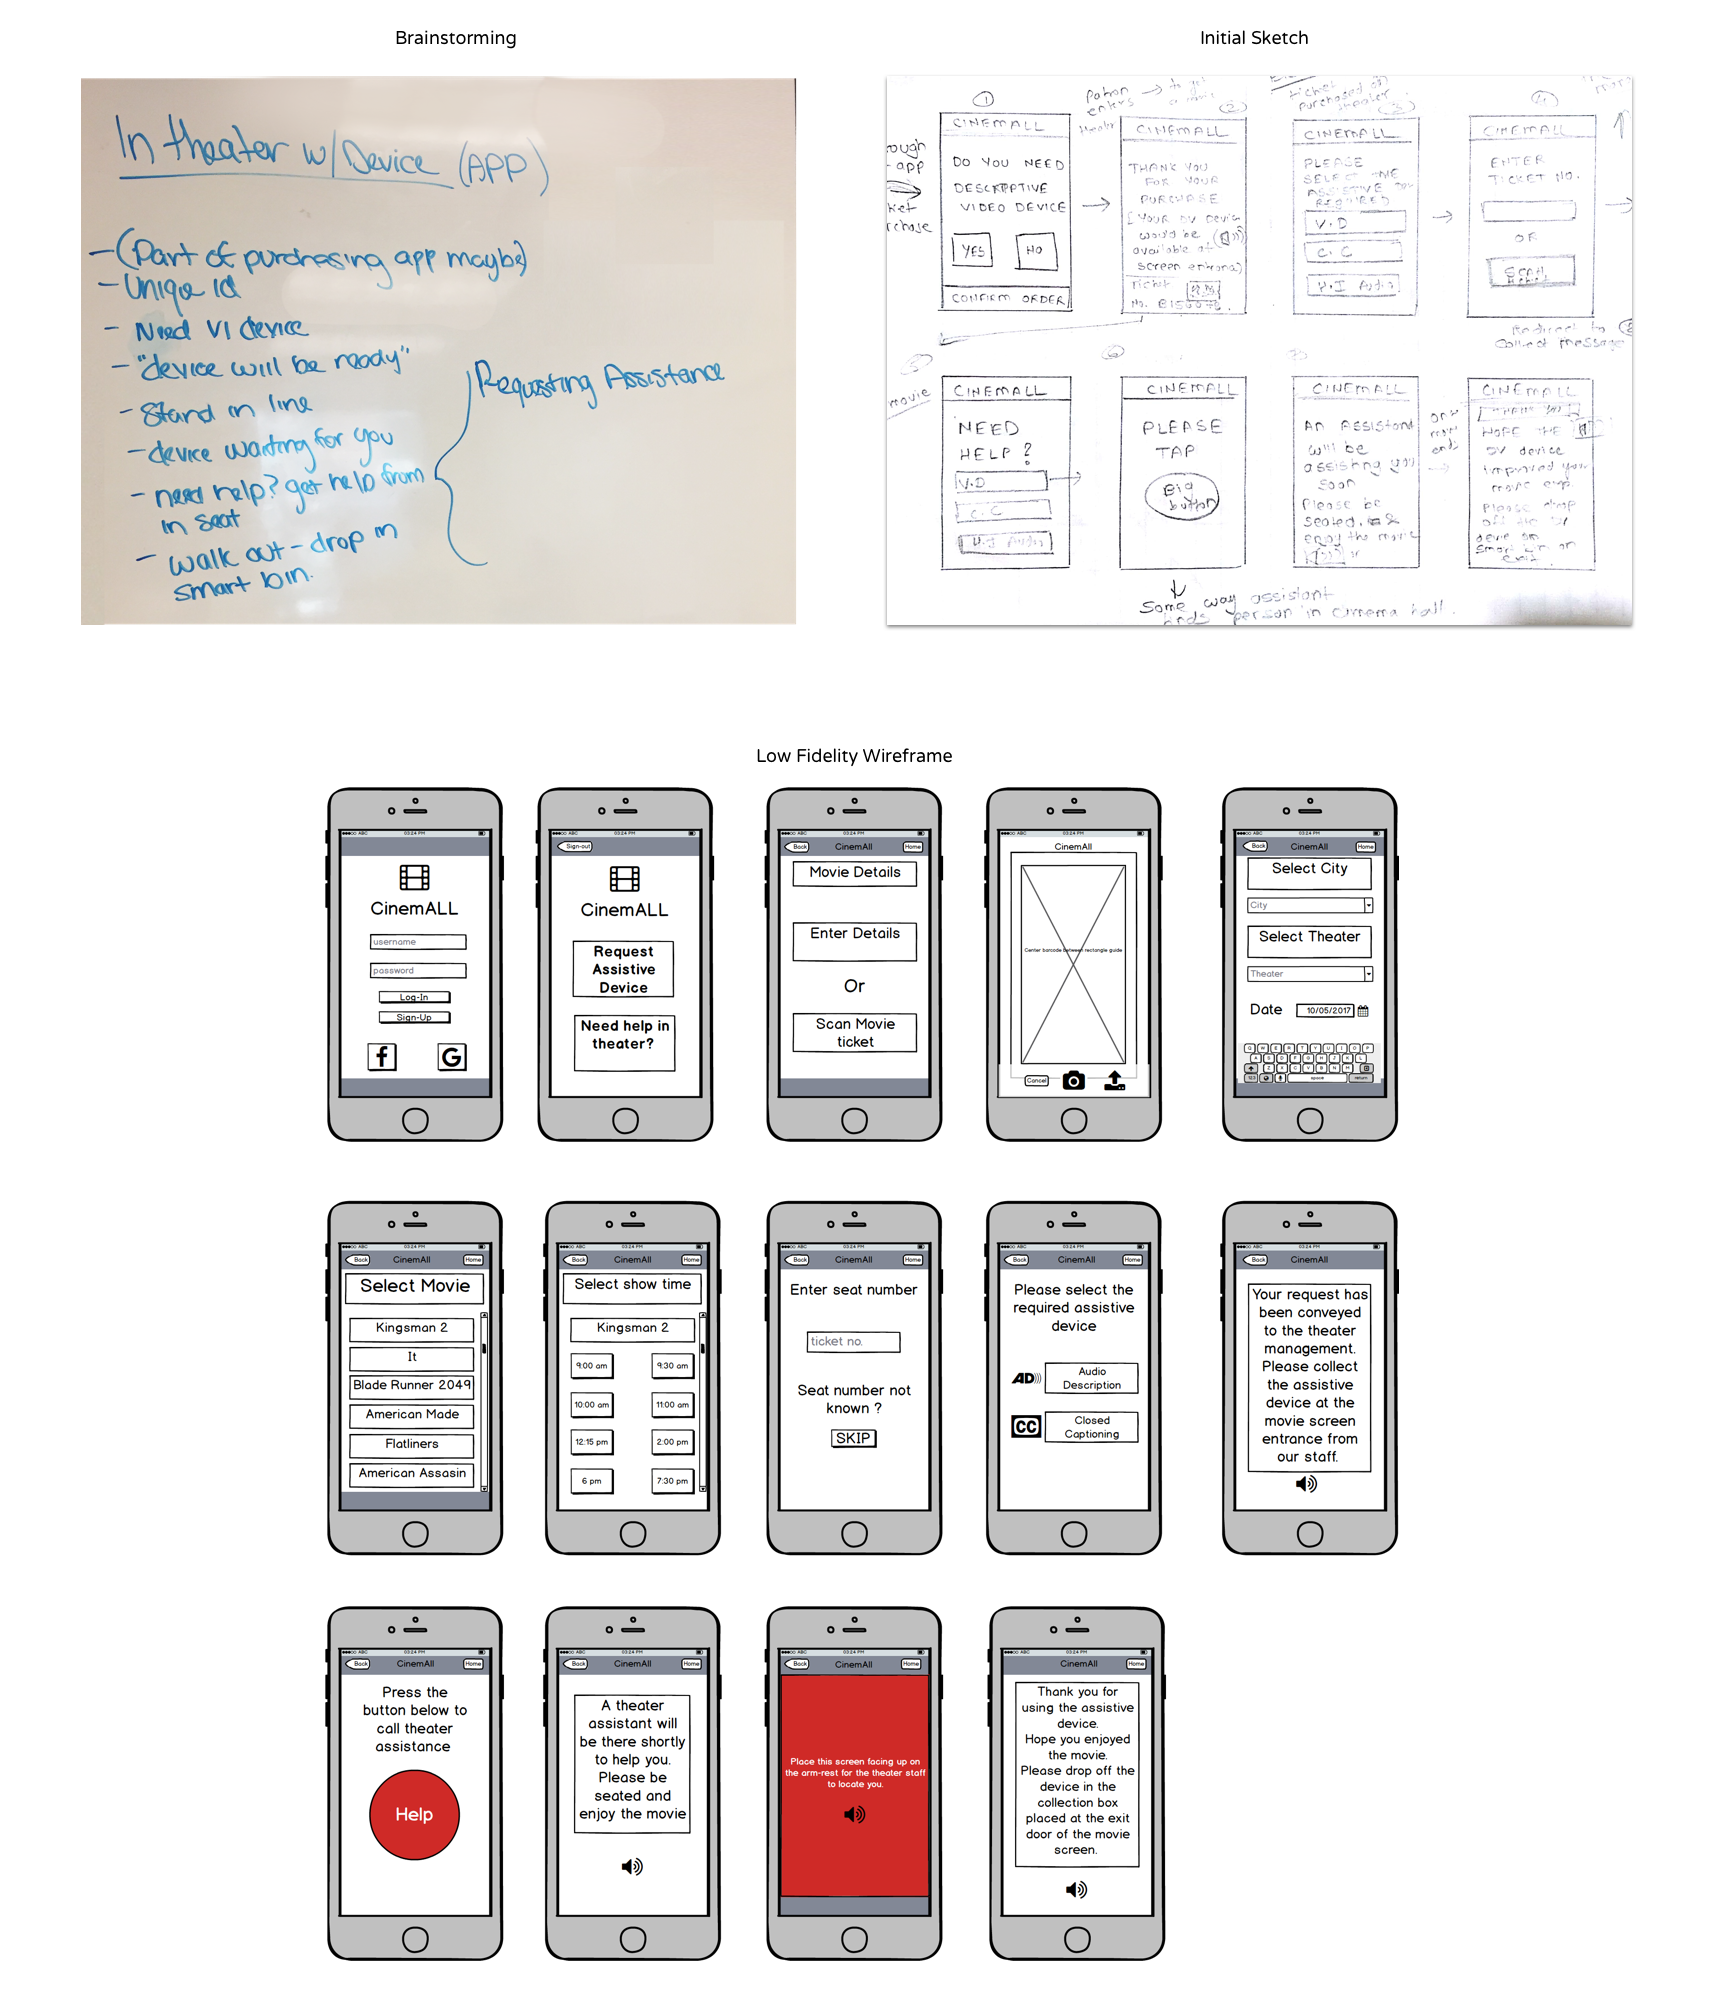 Brainstorming
Initial Sketch
In theater w/ Device (APP)
- (Part of purchasing app maybe)
- Unique id
- Need VI device
- "device will be ready"
- Stand in line
- device waiting for you
- need help? get help from
in seat
- walk out - drop in
smart bin.
Requesting Assistance
1
CINEMALL
DO YOU NEED
DESCRIPTIVE
VIDEO DEVICE
YES
NO
CONFIRM ORDER
Patron
enters
theater
CINEMALL
THANK YOU
FOR YOUR
PURCHASE
YOUR DV device
would be
available at
screen entrance
Ticket
No.
ticket
purchased at
theater
CINEMALL
PLEASE
SELECT THE
ASSISTIVE
REQUIRED
V.D
C.C
H.I Audio
4
CINEMALL
ENTER
TICKET NO.
OR
SCAN
Redirect to
collect message
movie
CINEMALL
NEED
HELP?
V.D
C.C
H.I Audio
CINEMALL
PLEASE
TAP
Big
button
CINEMALL
An Assistant
will be
assisting you
soon
Please be
seated, &
enjoy the movie
CINEMALL
HOPE THE
DV device
improved your
movie exp.
Please drop
off the
device in
exit
Some way assistant
finds person in cinema hall.
Low Fidelity Wireframe
ABC 03:24 PM
CinemALL
username
password
Log-In
Sign-Up
f
G
ABC 03:24 PM
Sign-out
CinemALL
Request
Assistive
Device
Need help in
theater?
ABC 03:24 PM
Back CinemAll Home
Movie Details
Enter Details
Or
Scan Movie
ticket
ABC 03:24 PM
CinemAll
Center barcode between rectangle guide
Cancel
ABC 03:24 PM
Back CinemAll Home
Select City
City
Select Theater
Theater
Date 10/05/2017
Q W E R T Y U I O P
A S D F G H J K L
Z X C V B N M
123 space return
ABC 03:24 PM
Back CinemAll Home
Select Movie
Kingsman 2
It
Blade Runner 2049
American Made
Flatliners
American Assasin
ABC 03:24 PM
Back CinemAll Home
Select show time
Kingsman 2
9:00 am 9:30 am
10:00 am 11:00 am
12:15 pm 2:00 pm
6 pm 7:30 pm
ABC 03:24 PM
Back CinemAll Home
Enter seat number
ticket no.
Seat number not
known ?
SKIP
ABC 03:24 PM
Back CinemAll Home
Please select the
required assistive
device
AD Audio
Description
CC Closed
Captioning
ABC 03:24 PM
Back CinemAll Home
Your request has
been conveyed
to the theater
management.
Please collect
the assistive
device at the
movie screen
entrance from
our staff.
ABC 03:24 PM
Back CinemAll Home
Press the
button below to
call theater
assistance
Help
ABC 03:24 PM
Back CinemAll Home
A theater
assistant will
be there shortly
to help you.
Please be
seated and
enjoy the movie
ABC 03:24 PM
Back CinemAll Home
Place this screen facing up on
the arm-rest for the theater staff
to locate you.
ABC 03:24 PM
CinemAll Home
Thank you for
using the assistive
device.
Hope you enjoyed
the movie.
Please drop off the
device in the
collection box
placed at the exit
door of the movie
screen.